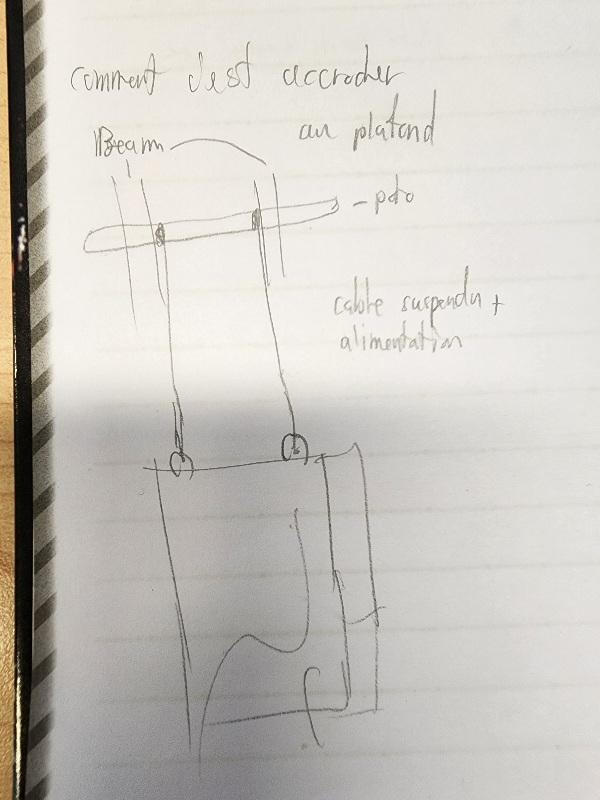 comment c'est accrocher
au platond
Beam
cable suspendu +
alimentation